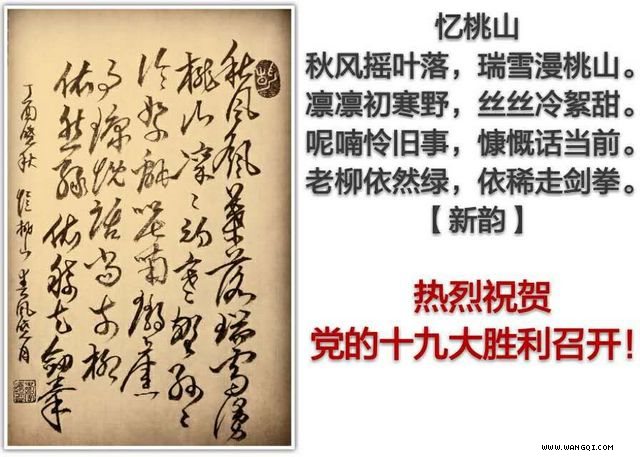 忆桃山
秋风摇叶落，瑞雪漫桃山。
凛凛初寒野，丝丝冷絮甜。
呢喃怜旧事，慷慨话当前。
老柳依然绿，依稀走剑拳。
【新韵】
热烈祝贺
党的十九大胜利召开！
秋风葉落瑞雪漫
桃山凛凛初寒野丝丝
冷絮甜呢喃旧
事慷慨话当前柳
依然绿依稀走剑拳
丁酉晚秋 忆桃山 春风晓月
www.wangqi.com